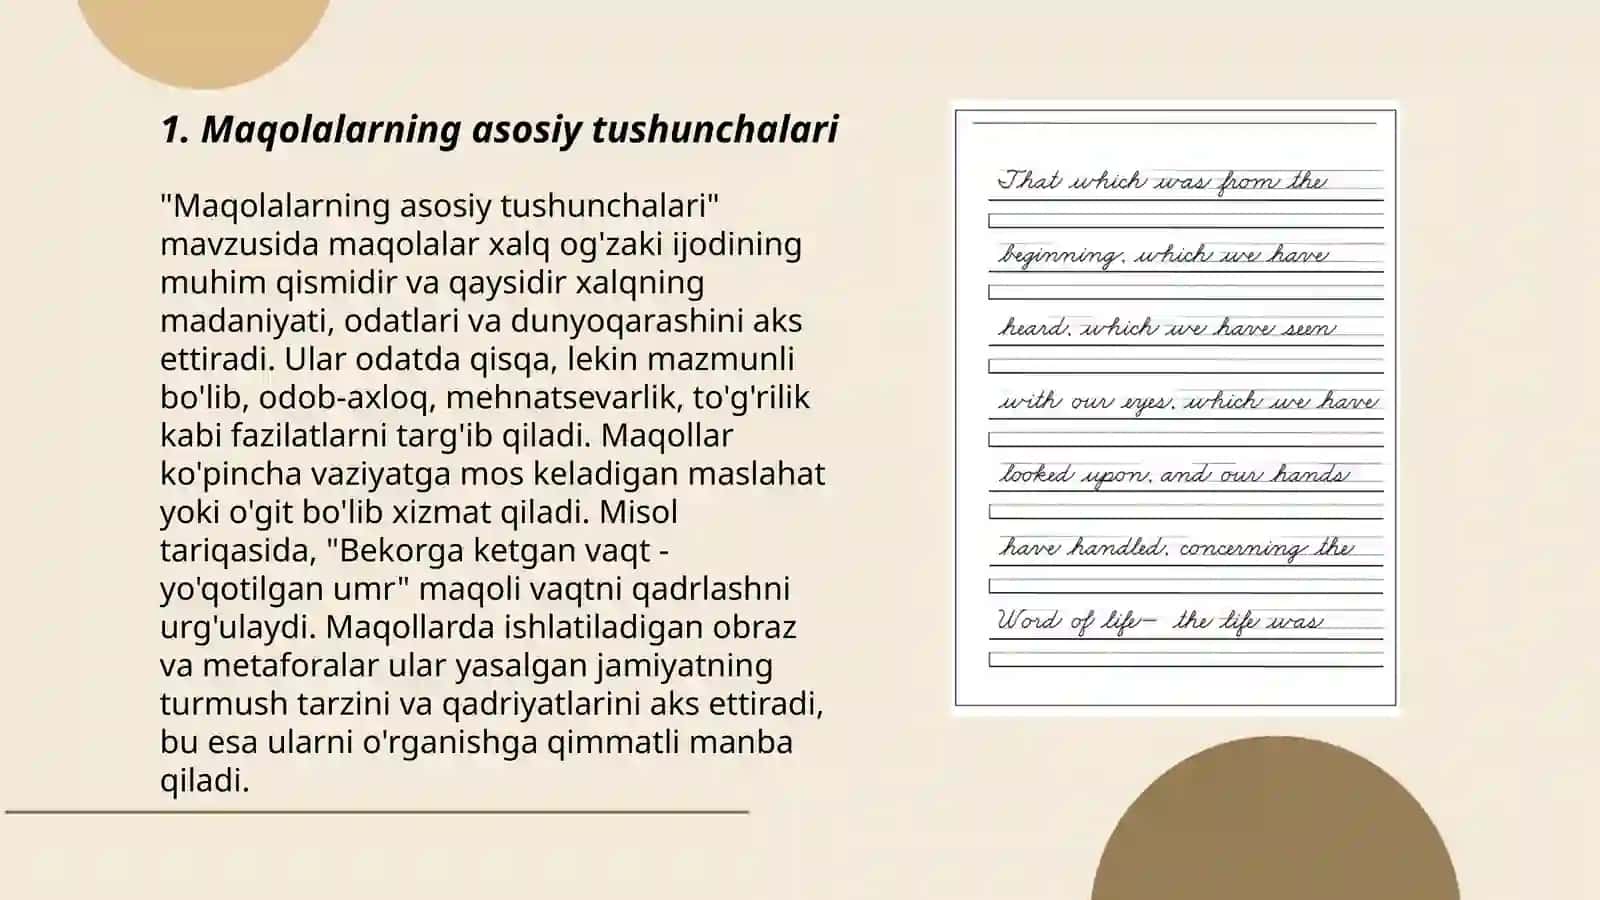 1. Maqolalarning asosiy tushunchalari
"Maqolalarning asosiy tushunchalari"
mavzusida maqolalar xalq og'zaki ijodining
muhim qismidir va qaysidir xalqning
madaniyati, odatlari va dunyoqarashini aks
ettiradi. Ular odatda qisqa, lekin mazmunli
bo'lib, odob-axloq, mehnatsevarlik, to'g'rilik
kabi fazilatlarni targ'ib qiladi. Maqollar
ko'pincha vaziyatga mos keladigan maslahat
yoki o'git bo'lib xizmat qiladi. Misol
tariqasida, "Bekorga ketgan vaqt -
yo'qotilgan umr" maqoli vaqtni qadrlashni
urg'ulaydi. Maqollarda ishlatiladigan obraz
va metaforalar ular yasalgan jamiyatning
turmush tarzini va qadriyatlarini aks ettiradi,
bu esa ularni o'rganishga qimmatli manba
qiladi.
That which was from the
beginning, which we have
heard, which we have seen
with our eyes, which we have
looked upon, and our hands
have handled, concerning the
Word of life— the life was